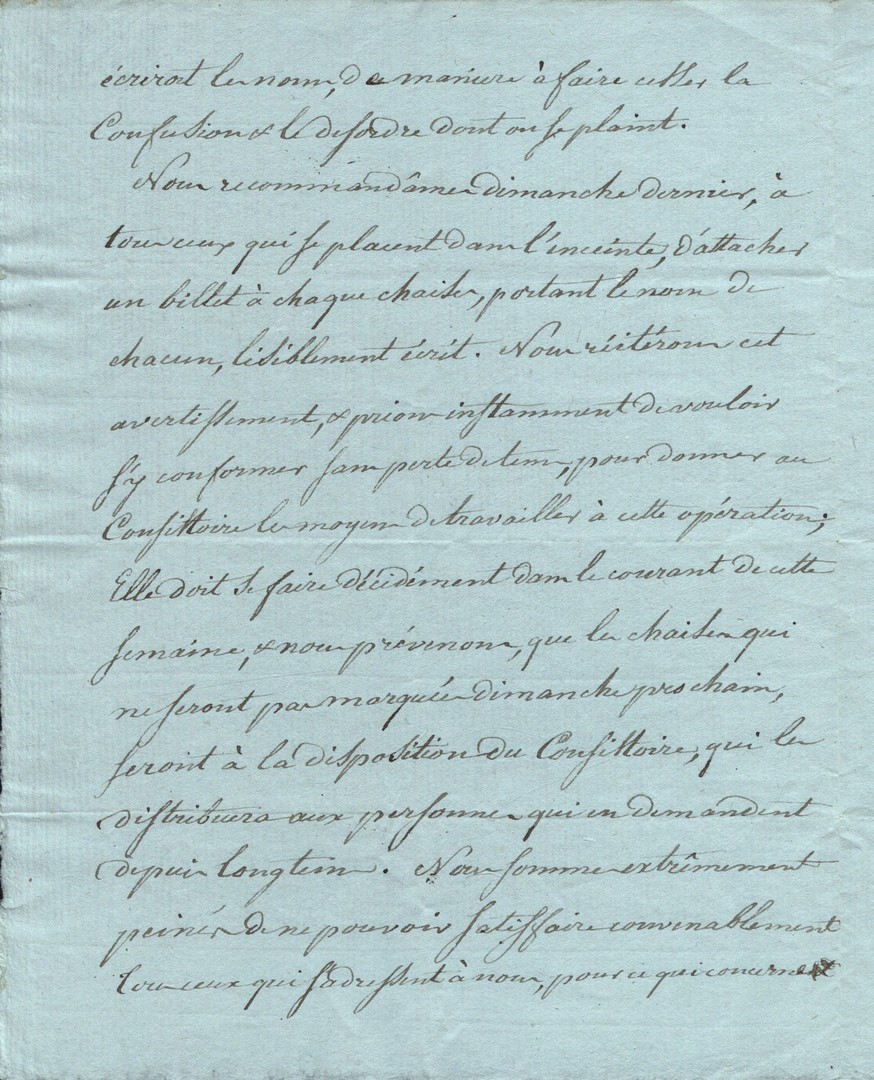 écriront les noms, de manière à faire cesser la
Confusion & le desordre dont on se plaint.
Nous recommandâmes dimanche dernier, à
tous ceux qui se placent dans l'enceinte, d'attacher
un billet à chaque chaise, portant le nom de
chacun, lisiblement écrit. Nous réitérons cet
avertissement, & prions instamment de vouloir
s'y conformer sans perte de tems, pour donner au
Consistoire les moyens de travailler à cette opération;
Elle doit se faire décidément dans le courant de cette
semaine, & nous prévenons, que les chaises qui
ne seront pas marquées dimanche prochain,
seront à la disposition du Consistoire, qui les
distribuera aux personnes qui en demandent
depuis longtems. Nous sommes extrêmement
peinés de ne pouvoir satisfaire convenablement
tous ceux qui s'adressent à nous, pour ce qui concerne